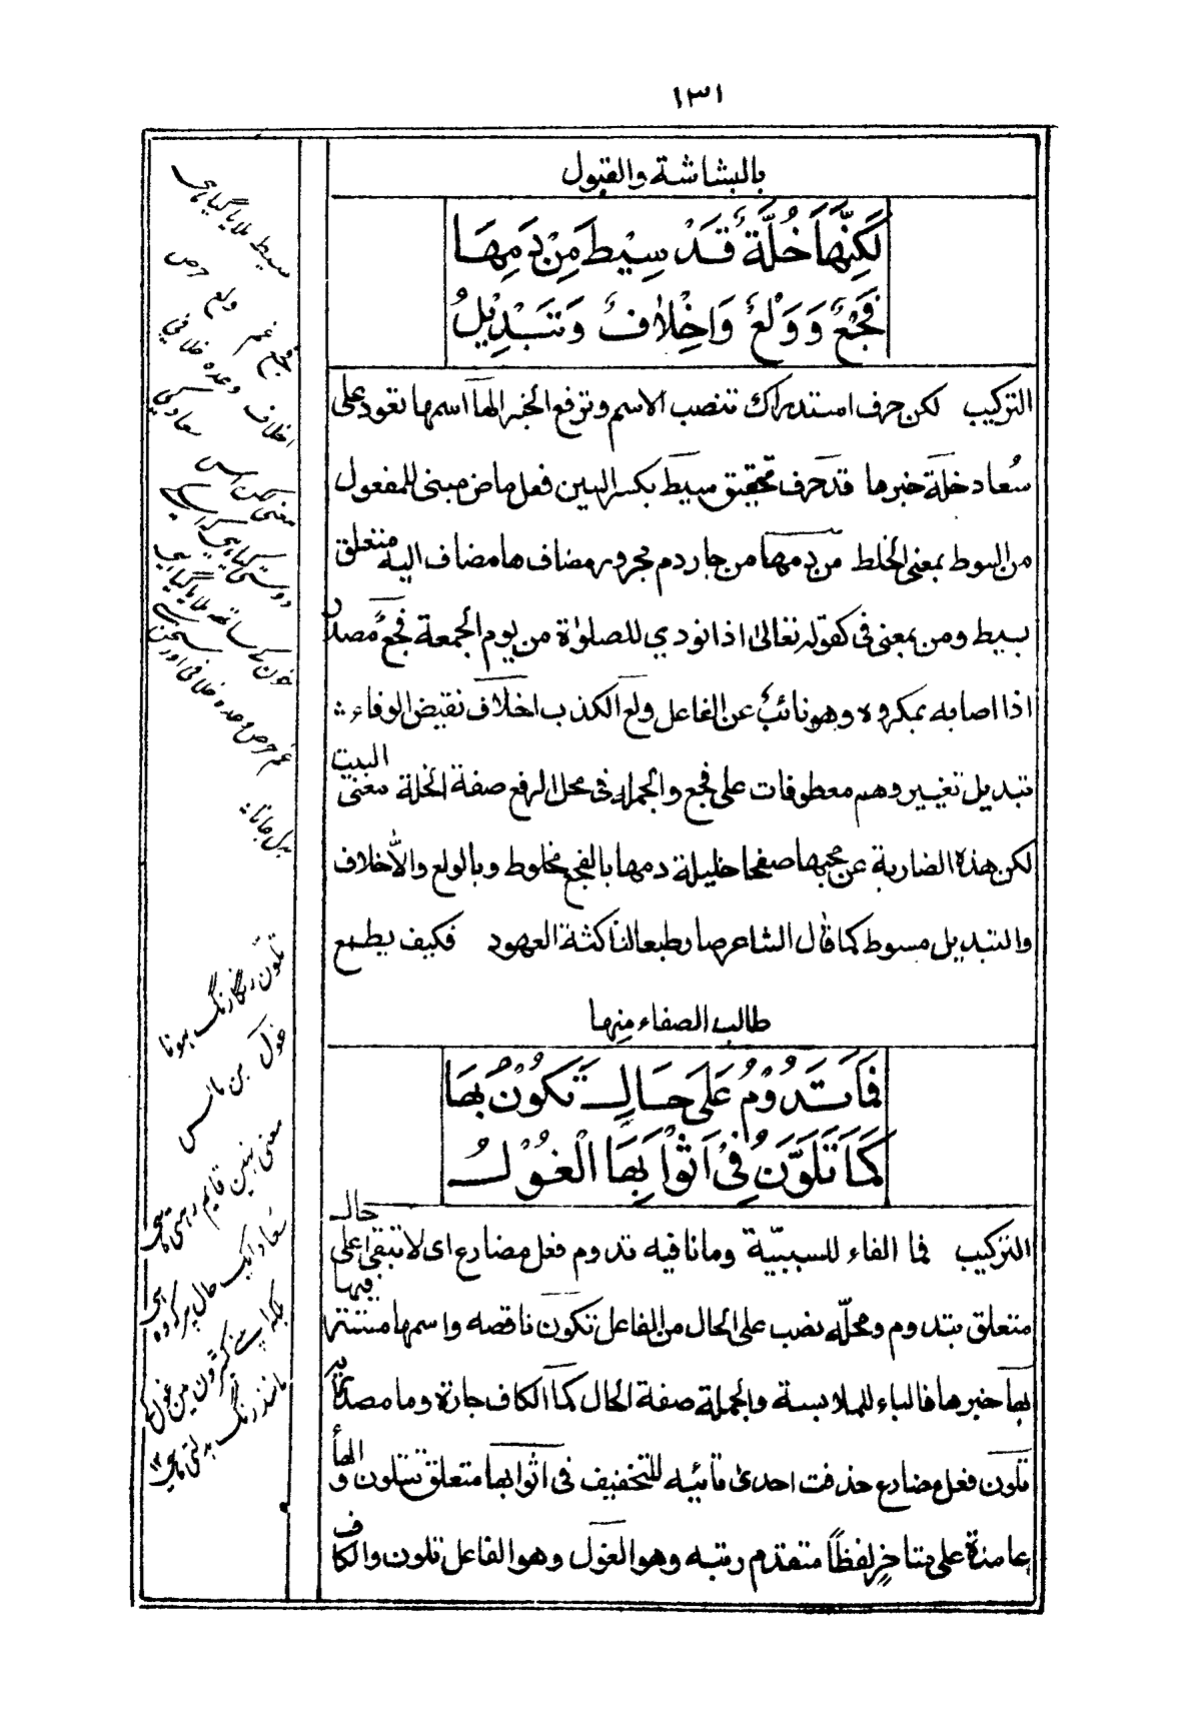 ١٣١
بالبشاشة والقبول
لَكِنَّهَا خُلَّةٌ قَدْ سِيْطَ مِنْ دَمِهَا
فَجْعٌ وَوَلْعٌ وَاِخْلَافٌ وَتَبْدِيْلُ
التركيب لكن حرف استدراك تنصب الاسم وترفع الخبر الهاَ اسمها تعود على
سُعاد خلة خبرها قد حرف تحقيق سيط بكسر السين فعل ماض مبنى للمفعول
من السوط بمعنى الخلط من دمها من جار دم مجرور مضاف ها مضاف اليه متعلق
بسيط ومن بمعنى فى كقوله تعالىٰ اذا نودي للصلوٰة من يوم الجمعة فجعٌ مصدر
اذا اصابه بمكروه وهو نائبٌ عن الفاعل ولع الكذب اخلاف نقيض الوفاء
تبديل تغيير وهم معطوفات على فجع والجملة فى محل الرفع صفة الخلة معنى البيت
لكن هذه الضاربة عن محبها صفحا خليلة دمها بالفجع مخلوط وبالولع والأخلاف
والتبديل مسوط كما قال الشاعر صار طبعا لنا كثة العهود فكيف يطمع
طالب الصفاء منها
فَمَا تَدُوْمُ عَلَى حَالٍ تَكُوْنُ بِهَا
كَمَا تَلَوَّنَ فِيْ اَثْوَابِهَا الْغُوْلُ
التركيب فما الفاء للسببيّة وما نافيه تدوم فعل مضارع اى لا تبقى على حال
متعلق بتدوم ومحلّه نصب على الحال من الفاعل تكون ناقصه واسمها مستتر فيها
بها خبرها فالباء للملابسة والجملة صفة الحال كما الكاف جارة وما مصدرية
تلون فعل مضارع حذفت احدى تائيه للتخفيف فى اثوابها متعلق بتلون والهاء
عائدة على متاخرٍ لفظاً متقدم رتبه وهو الغول وهو الفاعل تلون والكاف
سيط ملايا گيا ہی
فجع غم ولع حرص
اخلاف وعده خلافي
معنى ليكن سعاد كى
دوستى
خون كے ساتھ ملايا گيا ہی
غم حرص وعده خلافى اور
بدل جانا
تلون رنگا رنگ ہونا
غول بن مانس
معنى نہين قايم رہتى ہی
سعاد ايک حال پر كہ وه ہی
بلكہ اپنے كپڑون مين غول كے
مانند رنگ بدلتى ہی ١٢